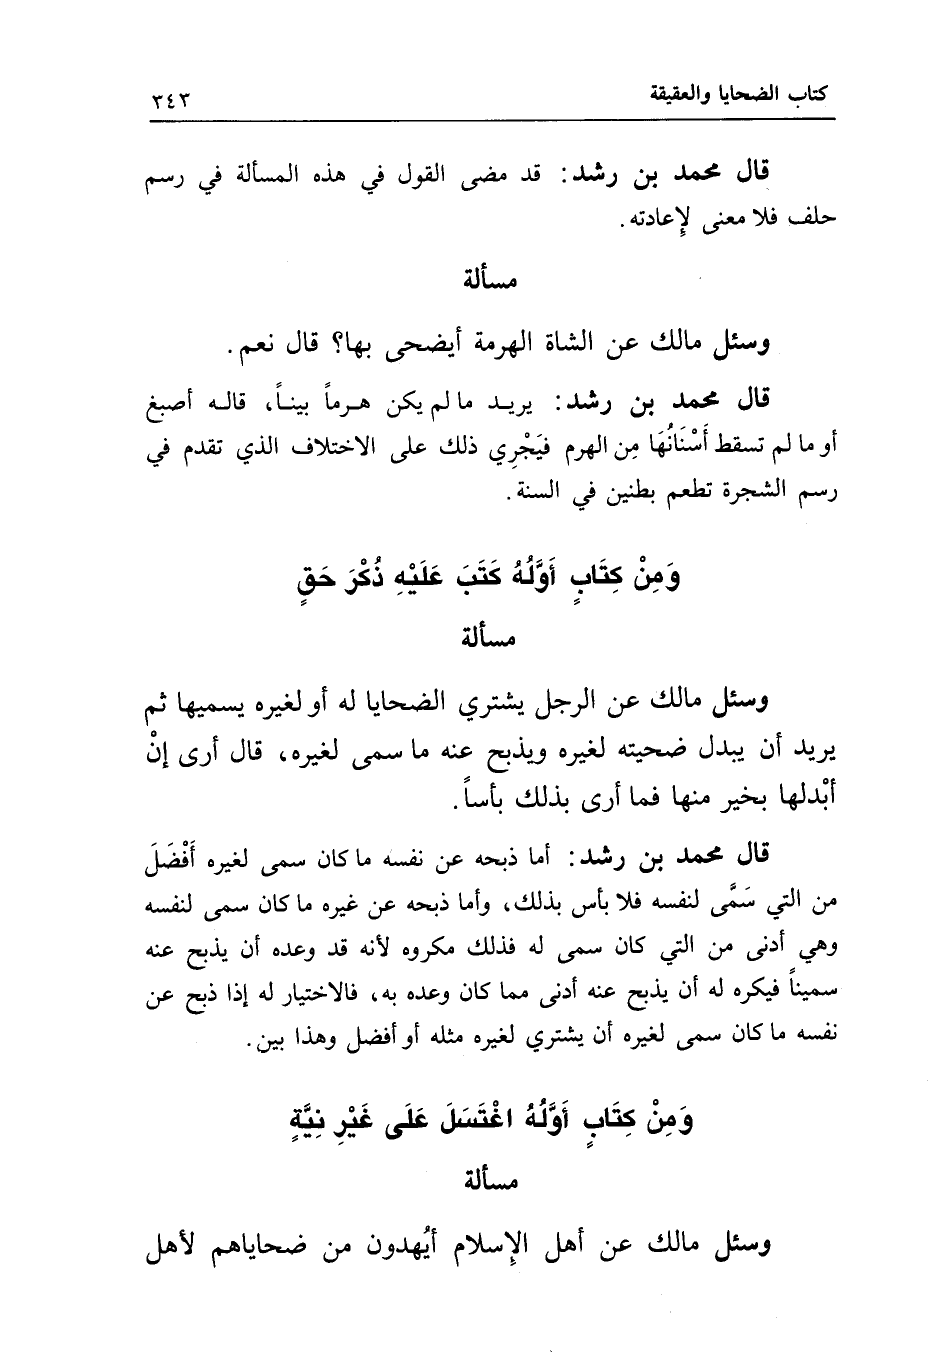 كتاب الضحايا والعقيقة ٣٤٣
قال محمد بن رشد: قد مضى القول في هذه المسألة في رسم
حلف فلا معنى لإِعادته.
مسألة
وسئل مالك عن الشاة الهرمة أيضحى بها؟ قال نعم.
قال محمد بن رشد: يريد ما لم يكن هرماً بيناً، قاله أصبغ
أو ما لم تسقط أَسْنَانُهَا مِن الهرم فيَجْرِي ذلك على الاختلاف الذي تقدم في
رسم الشجرة تطعم بطنين في السنة.
وَمِنْ كِتَابٍ أَوَّلُهُ كَتَبَ عَلَيْهِ ذُكْرَ حَقٍ
مسألة
وسئل مالك عن الرجل يشتري الضحايا له أو لغيره يسميها ثم
يريد أن يبدل ضحيته لغيره ويذبح عنه ما سمى لغيره، قال أرى إنْ
أبْدلها بخير منها فما أرى بذلك بأساً.
قال محمد بن رشد: أما ذبحه عن نفسه ما كان سمى لغيره أَفْضَلَ
من التي سَمَّى لنفسه فلا بأس بذلك، وأما ذبحه عن غيره ما كان سمى لنفسه
وهي أدنى من التي كان سمى له فذلك مكروه لأنه قد وعده أن يذبح عنه
سميناً فيكره له أن يذبح عنه أدنى مما كان وعده به، فالاختيار له إذا ذبح عن
نفسه ما كان سمى لغيره أن يشتري لغيره مثله أو أفضل وهذا بين.
وَمِنْ كِتَابٍ أَوَّلُهُ اغْتَسَلَ عَلَى غَيْرِ نِيَّةٍ
مسألة
وسئل مالك عن أهل الإِسلام أيُهدون من ضحاياهم لأهل